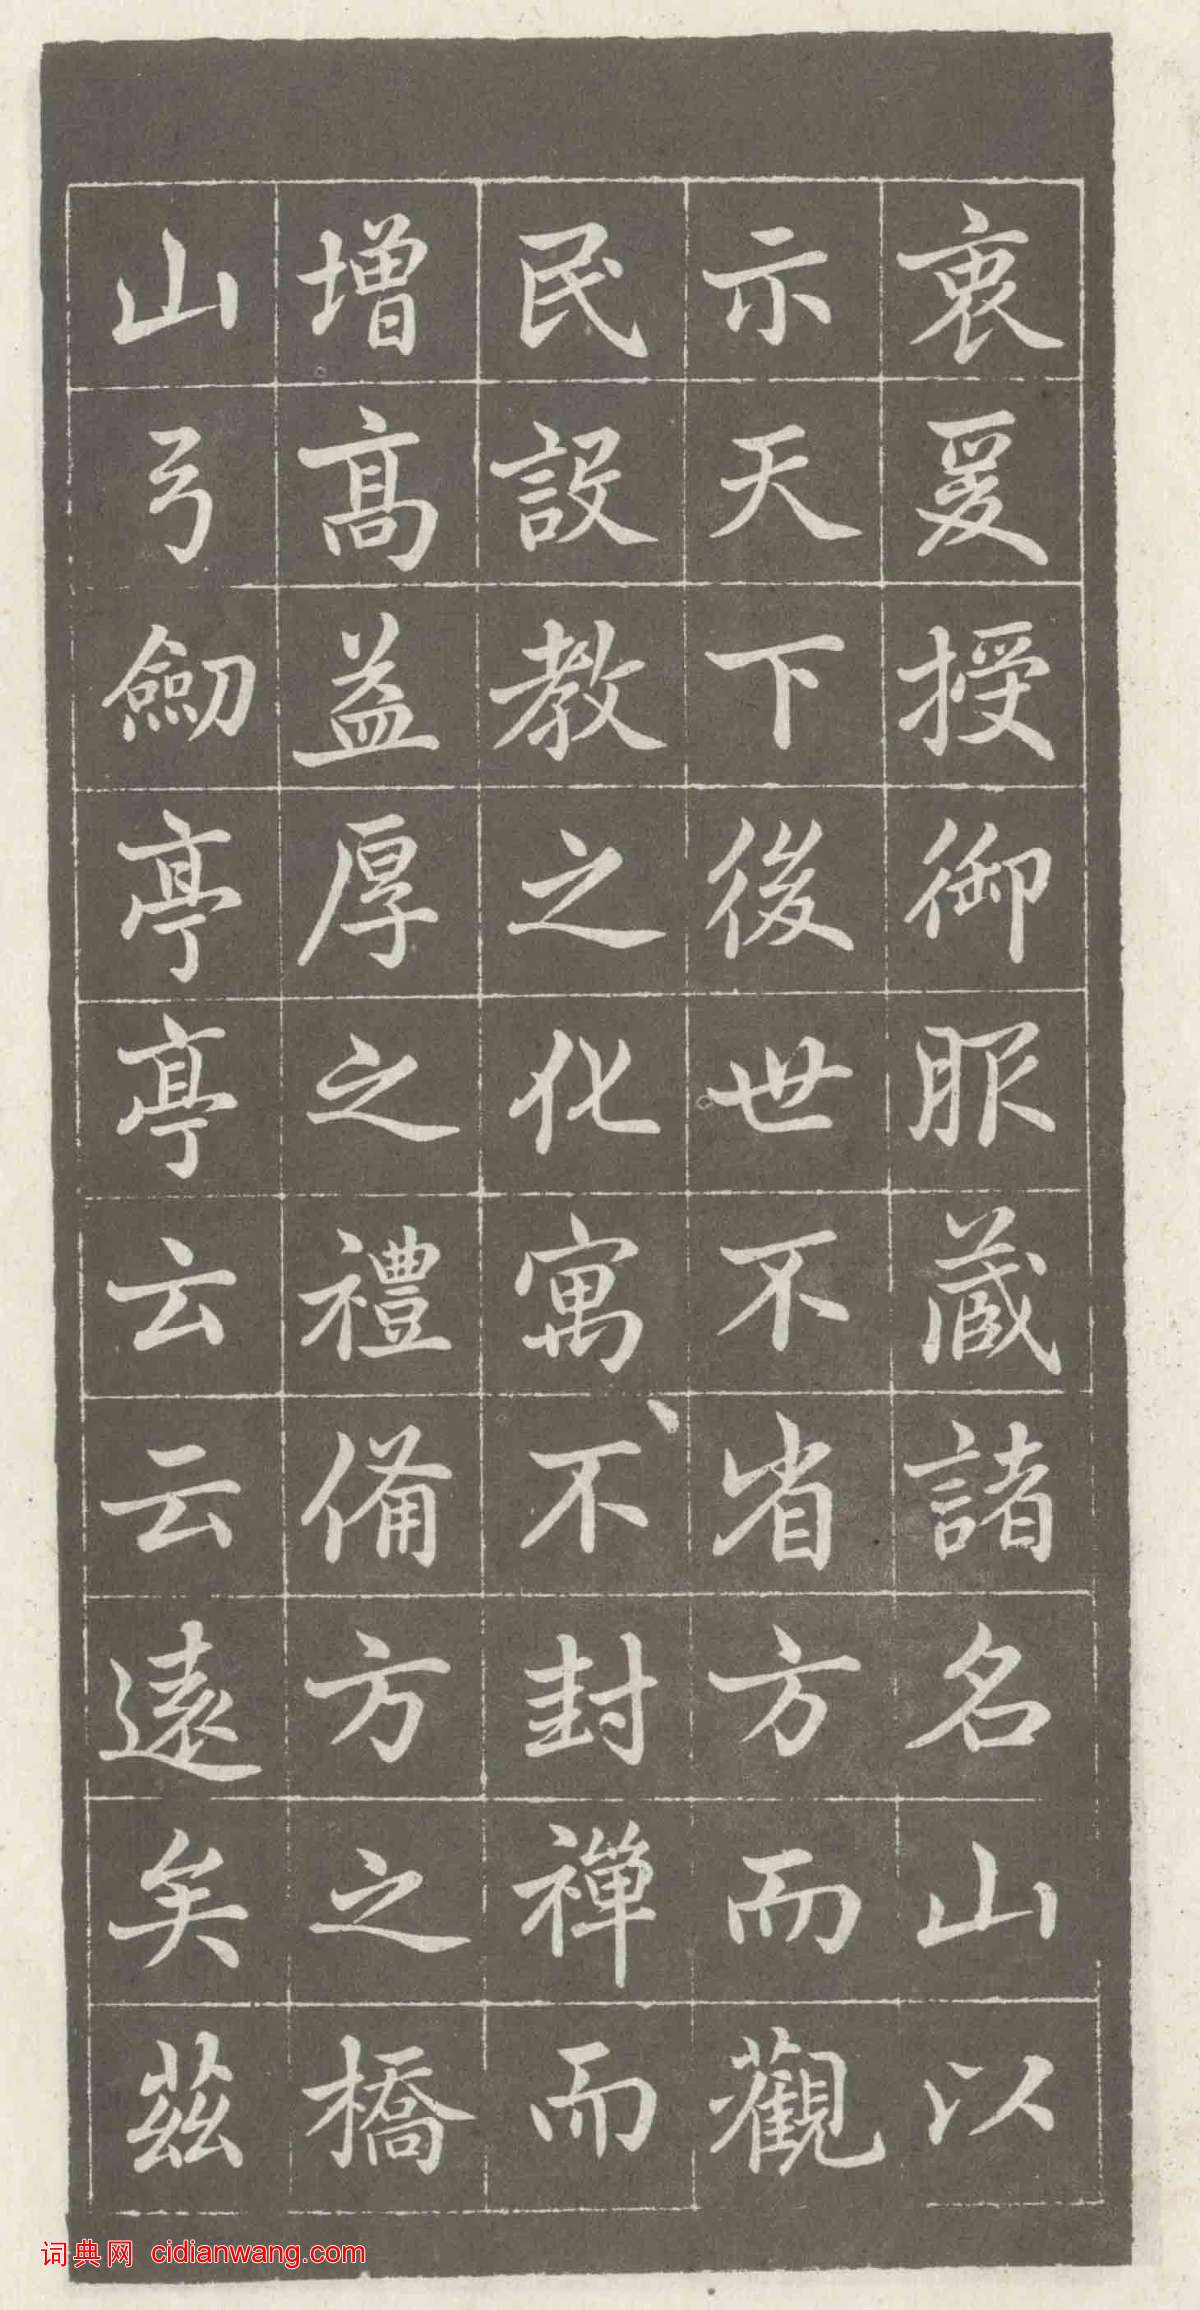 衷爰授御服蔵諸名山以
示天下後世不省方而觀
民設教之化寓不封禪而
増高益厚之禮備方之橋
山弓劒亭亭云云遠矣茲
词典网 cidianwang.com